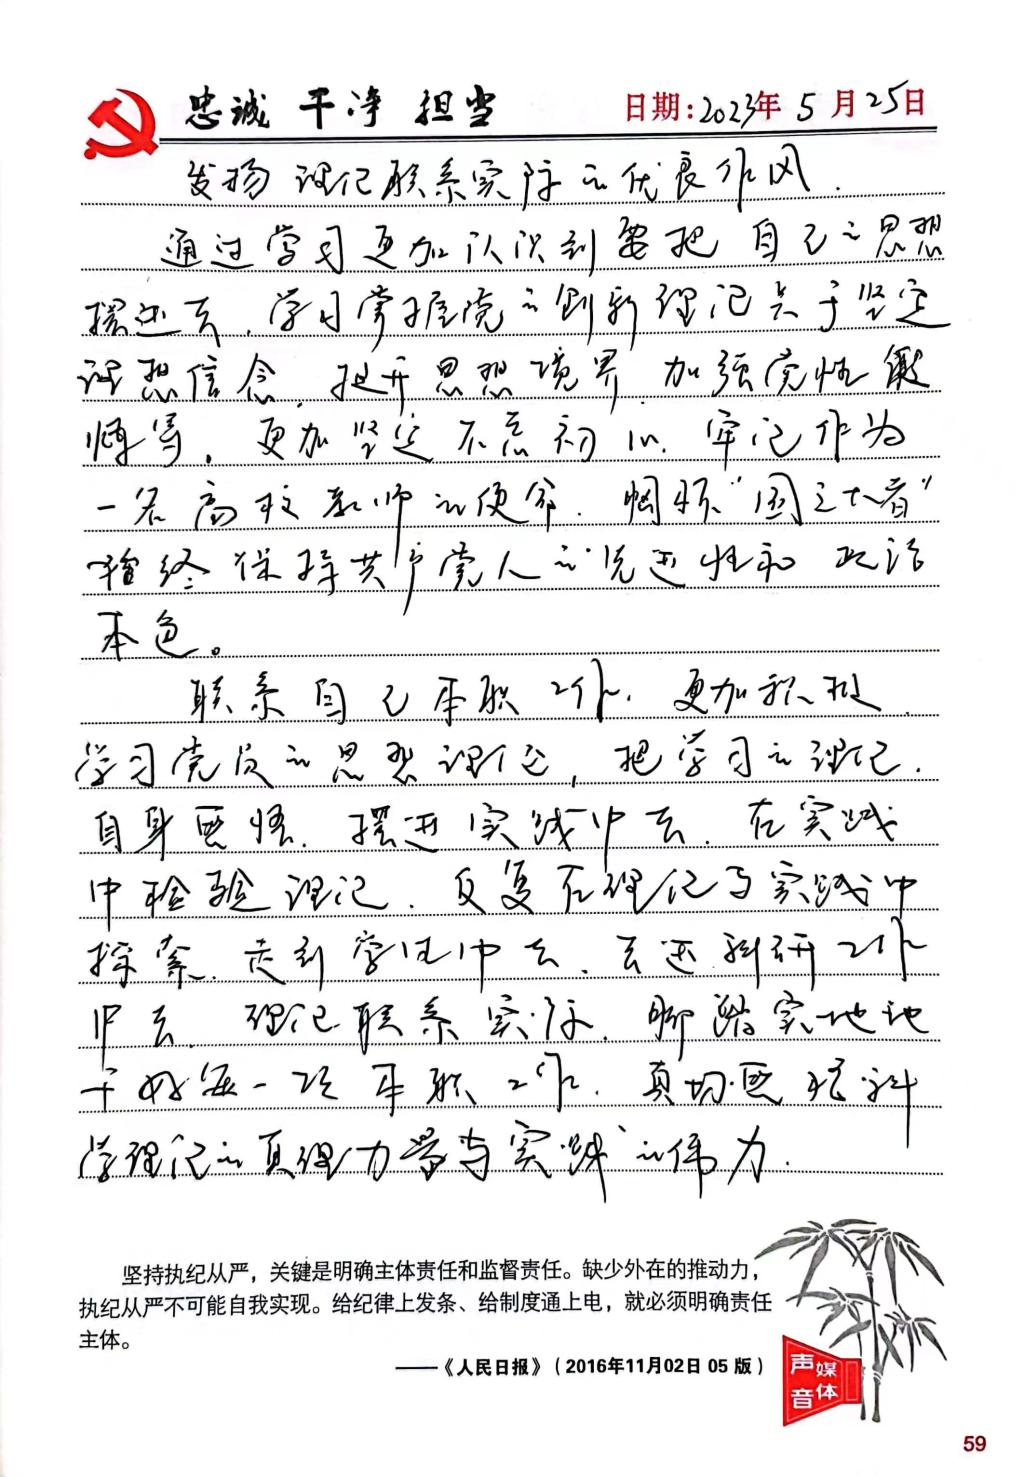 忠诚 干净 担当 日期:2023年5月25日
发扬 理论联系实际的优良作风.
通过学习更加认识到要把 自己的思想
摆进去,学习掌握党的创新理论关于坚定
理想信念,提升思想境界,加强党性
更加坚定不忘初心,牢记作为
一名高校教师的使命."国之大者"
始终保持共产党人的先进性和政治
本色。
联系自己本职工作,更加积极
学习党员的思想理论,把学习的理论,
自身感悟,摆进实践中去,在实践
中检验理论,反复在理论与实践中
探索,走到学生中去,去进科研工作
中去,理论联系实际,脚踏实地地
干好每一项本职工作,真切感悟科
学理论的真理力量与实践的伟力.
坚持执纪从严，关键是明确主体责任和监督责任。缺少外在的推动力，
执纪从严不可能自我实现。给纪律上发条、给制度通上电，就必须明确责任
主体。
——《人民日报》（2016年11月02日 05 版）
媒体
声音
59